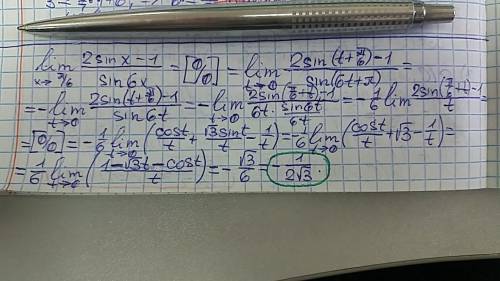 lim x→π/6 (2sinx-1)/(sin6x) = [0/0] = lim t→0 (2sin(t+π/6)-1)/(sin(6t+π)) =
= -lim t→0 (2sin(t+π/6)-1)/(sin6t) = -lim t→0 (2sin(π/6+t)-1)/(6t·(sin6t)/(6t)) = -1/6 lim t→0 (2sin(π/6+t)-1)/t =
= [0/0] = -1/6 lim t→0 (cost/t + √3sint/t - 1/t) = -1/6 lim t→0 (cost/t + √3 - 1/t) =
= 1/6 lim t→0 ((1-√3t-cost)/t) = -√3/6 = -1/(2√3).